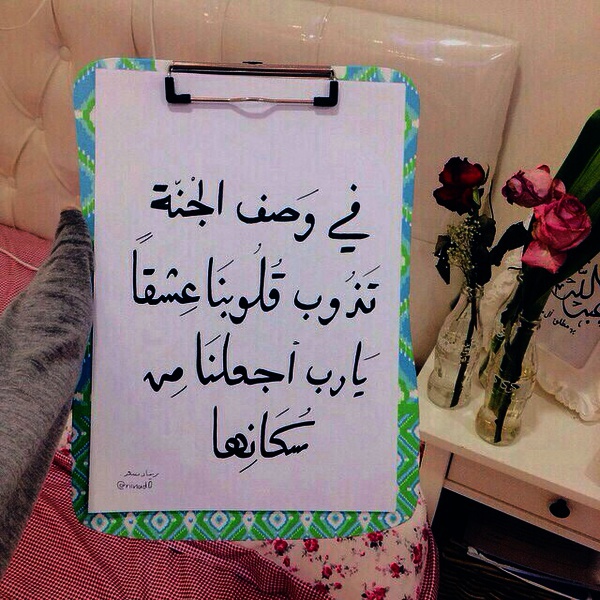 في وَصف الجْنّة
تَذُوب قُلُوبنَا عِشقاً
يَارب أجعلنَا من
سُكَانِها